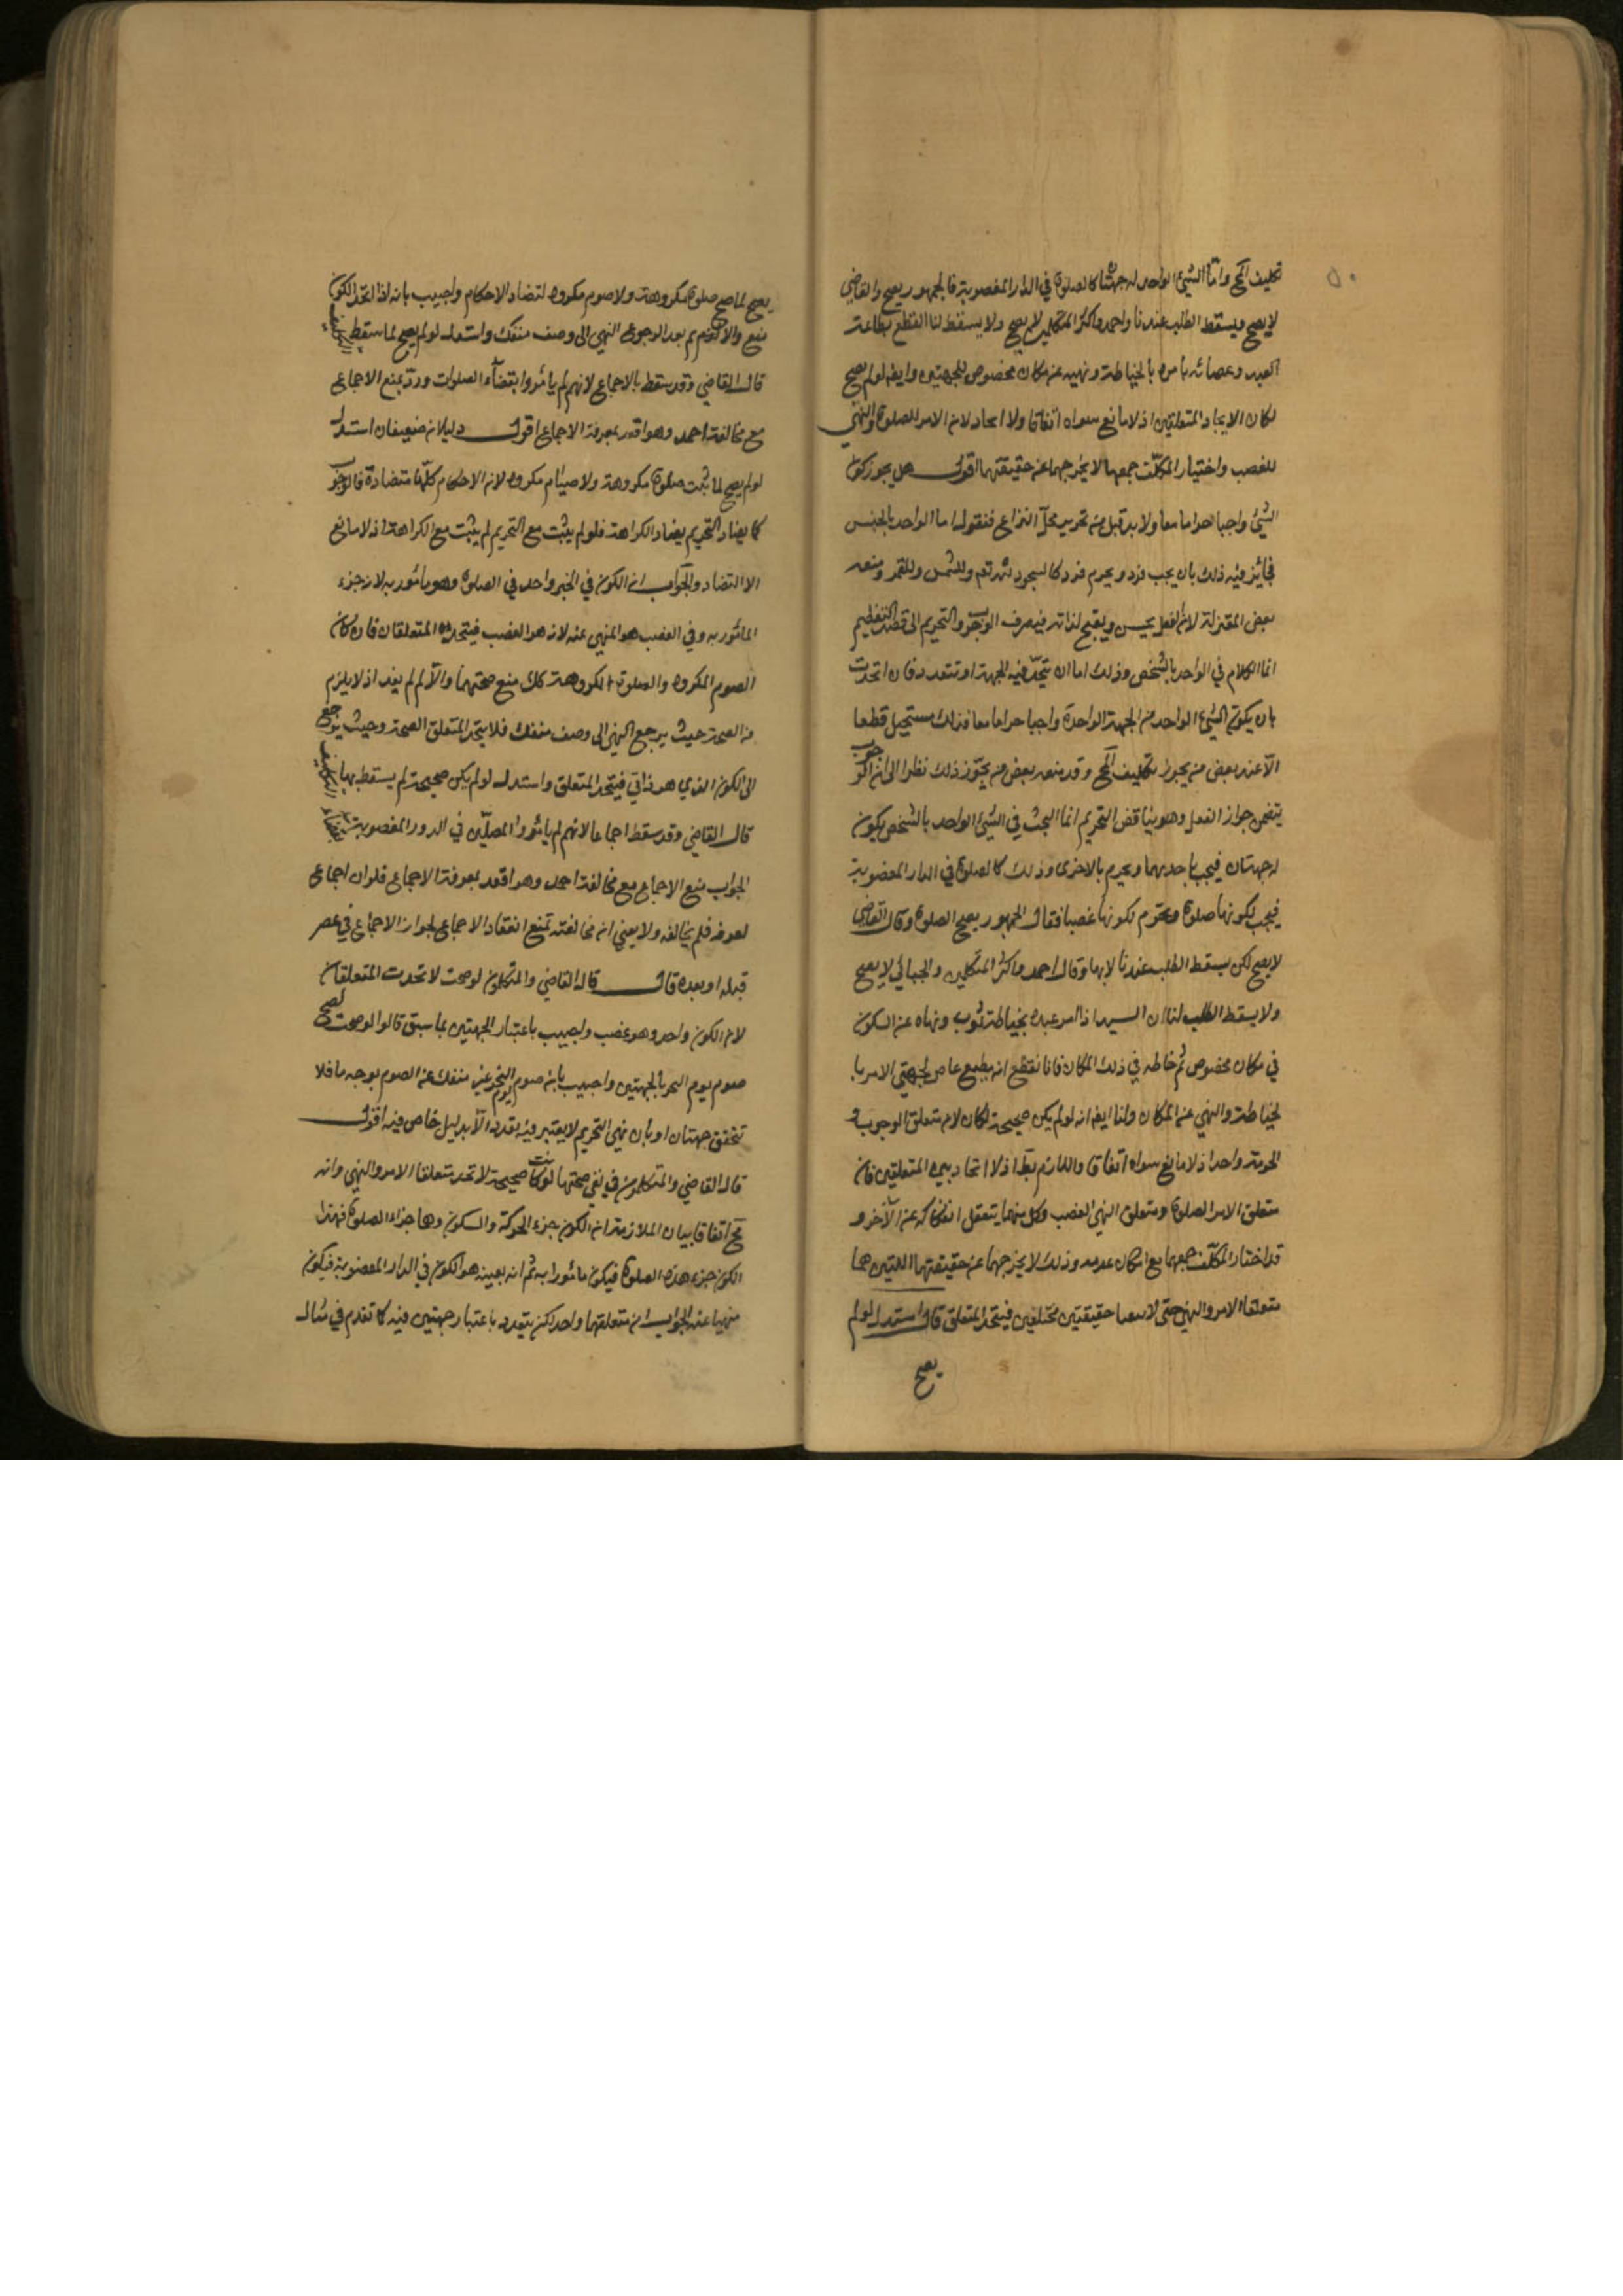 ٥٠
تكليف المح واما الشيئ الواحد له جهتان كالصلوة في الدار المغصوبة فالجمهور يصح والقاضي
لا يصح ويسقط الطلب عندنا واحمد واكثر المتكلمين لا يصح ولا يسقط لنا القطع بطاعة
العبد وعصيانه بامره بالخياطة ونهيه عن مكان مخصوص للجهتين وايضا لو لم يصح
لكان لاتحاد المتعلقين اذ لا مانع سواه اتفاقا ولا اتحاد لان الامر للصلوة والنهي
للغصب واختيار المكلف جمعهما لا يخرجهما عن حقيقتهما اقول هل يجوز كون
الشيئ واجبا حراما معا ولا بد قبل من تحرير محل النزاع فنقول اما الواحد بالجنس
فجائز فيه ذلك بان يجب فرد ويحرم فرد كالسجود لله تعم وللشمس وللقمر ومنعه
بعض المعتزلة لان الفعل يحسن ويقبح لذاته فيصرف الوجوب والتحريم الى قصد التعظيم
انما الكلام في الواحد بالشخص وذلك اما ان يتحد فيه الجهة او تتعدد فان اتحدت
بان يكون الشيئ الواحد من الجهة الواحدة واجبا حراما معا فذلك مستحيل قطعا
الا عند بعض من يجوز تكليف المح وقد منعه بعض من يجوز ذلك نظرا الى ان الوجوب
يتضمن جواز الفعل وهو يناقض التحريم انما البحث في الشيئ الواحد بالشخص يكون
له جهتان فيجب باحديهما ويحرم بالاخرى وذلك كالصلوة في الدار المغصوبة
فيجب لكونها صلوة ويحرم لكونها غصبا فقال الجمهور يصح الصلوة وقال القاضي
لا يصح لكن يسقط الطلب عندنا لا بها وقال احمد واكثر المتكلمين والجبائي لا يصح
ولا يسقط الطلب لنا ان السيد اذا امر عبده بخياطة ثوب ونهاه عن السكون
في مكان مخصوص ثم خاطه في ذلك المكان فانا نقطع انه مطيع عاص لجهتي الامر با
لخياطة والنهي عن المكان ولنا ايضا انه لو لم يكن صحيحة لكان لان متعلق الوجوب و
الحرمة واحد اذ لا مانع سواه اتفاقا واللازم بط اذ لا اتحاد بين المتعلقين فان
متعلق الامر الصلوة ومتعلق النهي الغصب وكل منهما يتعقل انفكاكه عن الآخر و
قد اختار المكلف جمعهما مع امكان عدمه وذلك لا يخرجهما عن حقيقتهما اللتين هما
متعلقا الامر والنهي حتى لا يبقيا حقيقتين مختلفين فيتحد المتعلق قال استدل لو لم
يصح
يصح لما صح صلوة مكروهة ولا صوم مكروه لتضاد الاحكام واجيب بانه اذا اتحد الكون
منع والا لم بعد لرجوع النهي الى وصف منفك واستدل لو لم يصح لما سقط التكليف
قال القاضي وقد سقط بالاجماع لانهم لم يامروا بقضآء الصلوات ورد بمنع الاجماع
مع مخالفة احمد وهو اقعد بمعرفة الاجماع اقول دليلان ضعيفان استدل
لو لم يصح لما ثبت صلوة مكروهة ولا صيام مكروه لان الاحكام كلها متضادة فالوجوب
كما يضاد التحريم يضاد الكراهة فلو لم يثبت مع التحريم لم يثبت مع الكراهة اذ لا مانع
الا التضاد والجواب ان الكون في الحيز واحد في الصلوة وهو مامور به لانه جزء
المامور به وفي الغصب هو المنهي عنه لانه هو الغصب فيتحد المتعلقان فان كان
الصوم المكروه والصلوة المكروهة كك منع صحتهما والا لم يفد اذ لا يلزم
من الصحة حيث يرجع النهي الى وصف منفك فلا يتحد المتعلق الصحة وحيث يرجع
الى الكون الذي هو ذاتي فيتحد المتعلق واستدل لو لم يكن صحيحة لم يسقط بها التكليف
قال القاضي وقد سقط اجماعا لانهم لم يامروا المصلين في الدور المغصوبة بقضاء
الجواب منع الاجماع مع مخالفة احمد وهو اقعد بمعرفة الاجماع فلو ان اجماع
لعرفه فلم يخالفه ولا يعني ان مخالفته تمنع انعقاد الاجماع لجواز الاجماع في عصر
قبله او بعده قال قال القاضي والمتكلمون لو صحت لاتحدت المتعلقان
لان الكون واحد وهو غصب واجيب باعتبار الجهتين بما سبق قالوا لو صحت لصح
صوم يوم النحر بالجهتين واجيب بان صوم يوم النحر غير منفك عن الصوم بوجه ما فلا
تتحقق جهتان او بان نهي التحريم لا يعتبر فيه تعدد الا بدليل خاص فيه اقول
قال القاضي والمتكلمون في نفي صحتها لو كانت صحيحة لاتحد متعلقا الامر والنهي وانه
مح اتفاقا بيان الملازمة ان الكون جزء الحركة والسكون وهما جزءا الصلوة فهذا
الكون جزء هذه الصلوة فيكون مامورا به ثم انه بعينه هو الكون في الدار المغصوبة فيكون
منهيا عنه الجواب ان متعلقهما واحد لكن يتعدد باعتبار جهتين فيه كما تقدم في مثال